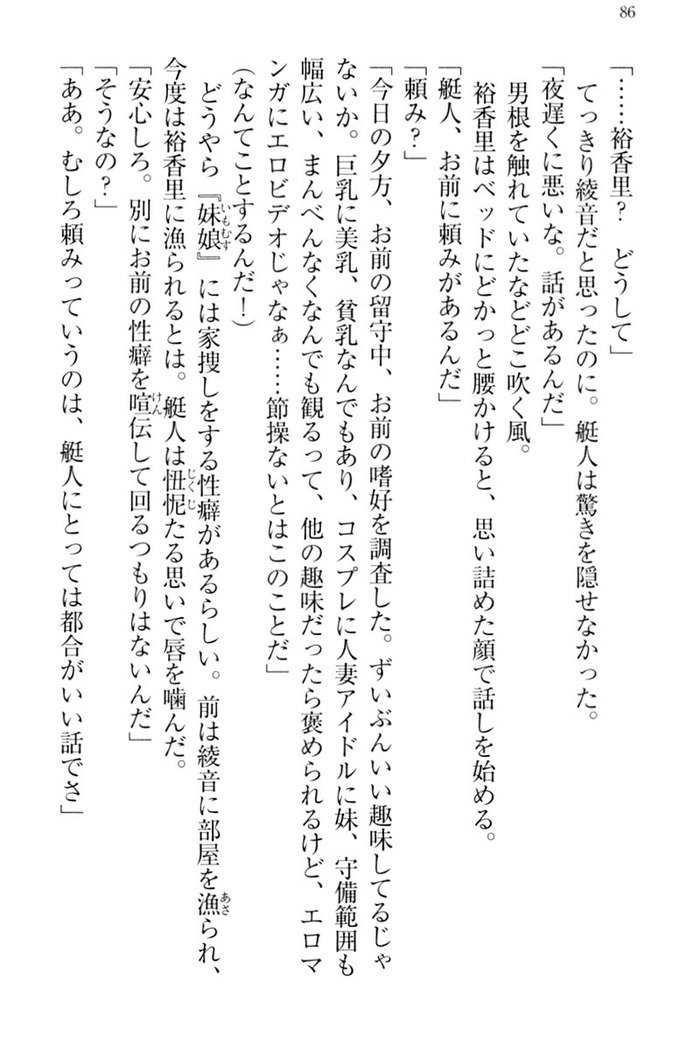 86
「……裕香里？　どうして」
　てっきり綾音だと思ったのに。艇人は驚きを隠せなかった。
「夜遅くに悪いな。話があるんだ」
　男根を触れていたなどどこ吹く風。
　裕香里はベッドにどかっと腰かけると、思い詰めた顔で話しを始める。
「艇人、お前に頼みがあるんだ」
「頼み？」
「今日の夕方、お前の留守中、お前の嗜好を調査した。ずいぶんいい趣味してるじゃ
ないか。巨乳に美乳、貧乳なんでもあり、コスプレに人妻アイドルに妹、守備範囲も
幅広い、まんべんなくなんでも観るって、他の趣味だったら褒められるけど、エロマ
ンガにエロビデオじゃなぁ……節操ないとはこのことだ」
（なんてことするんだ！）
　どうやら『妹娘いもむす』には家捜しをする性癖があるらしい。前は綾音に部屋を漁あさられ、
今度は裕香里に漁られるとは。艇人は忸怩じくじたる思いで唇を噛んだ。
「安心しろ。別にお前の性癖を喧けん伝して回るつもりはないんだ」
「そうなの？」
「ああ。むしろ頼みっていうのは、艇人にとっては都合がいい話でさ」